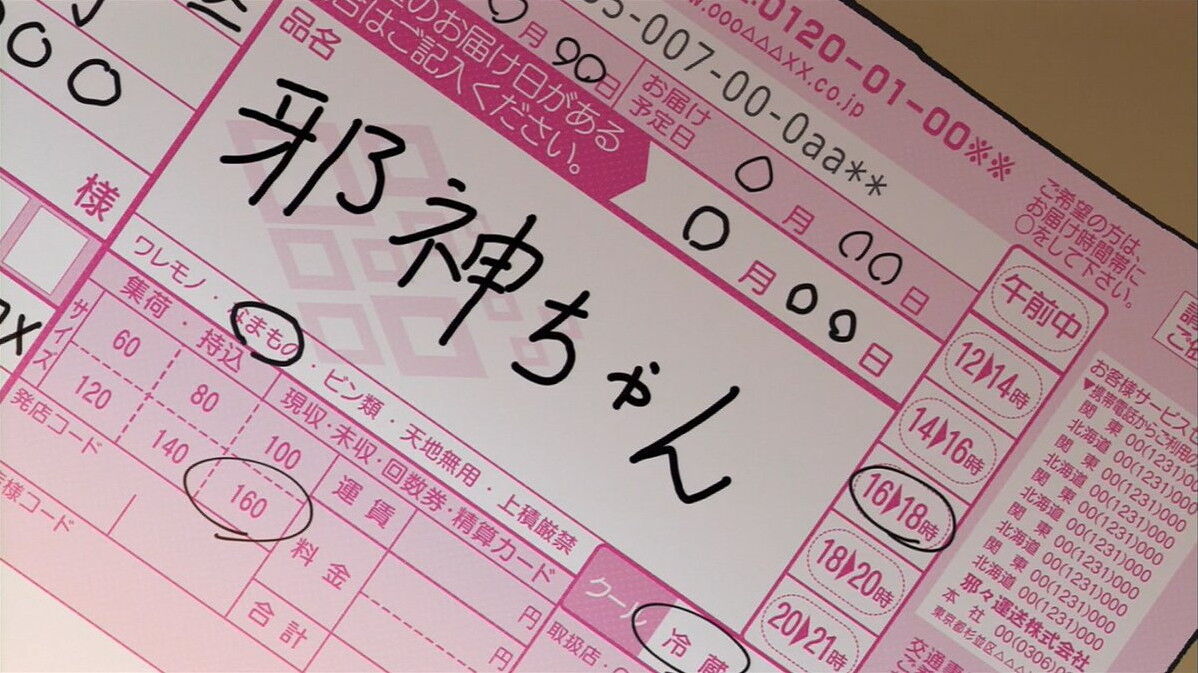 0120-01-00※※
www.ooo△△△xx.co.jp
007-00-0aa**
品名
のお届け日がある
はご記入ください。
月 90日
お届け
予定日
0月00日
0月00日
邪神ちゃん
様
ワレモノ・なまもの・ビン類・天地無用・上積厳禁
集荷・持込
現収・未収・回数券・精算カード
サイズ
60
80
100
120
140
160
運賃
円
料金
円
合計
発店コード
様コード
クール
冷蔵
取扱店・
ご希望の方は、
お届け時間帯に
○をして下さい。
午前中
12▶14時
14▶16時
16▶18時
18▶20時
20▶21時
お客様サービス
▼携帯電話からご利用の
関東 00(1231)000
北海道 00(1231)000
関東 00(1231)000
北海道 00(1231)000
関東 00(1231)000
北海道 00(1231)000
関東 00(1231)000
北海道 00(1231)000
本社 00(0306)00
邪々運送株式会社
東京都杉並区△△△
交通事
ご